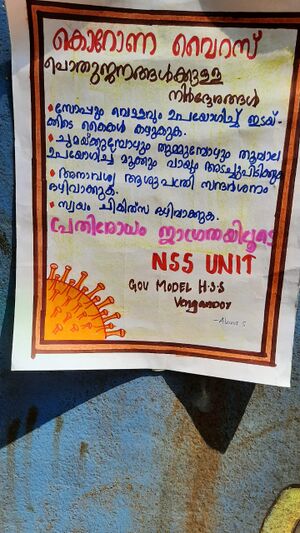 കൊറോണ വൈറസ്
പൊതുജനങ്ങൾക്കുള്ള
നിർദ്ദേശങ്ങൾ
• സോപ്പും വെള്ളവും ഉപയോഗിച്ച് ഇടയ്
ക്കിടെ കൈകൾ കഴുകുക.
• ചുമയ്ക്കുമ്പോഴും തുമ്മുമ്പോഴും തൂവാല
ഉപയോഗിച്ച് മൂക്കും വായും അടച്ചുപിടിക്കുക
• അനാവശ്യ ആശുപത്രി സന്ദർശനം
ഒഴിവാക്കുക.
• സ്വയം ചികിത്സ ഒഴിവാക്കുക.
പ്രതിരോധം ജാഗ്രതയിലൂടെ
NSS UNIT
GOV MODEL H.S.S
Venganoor